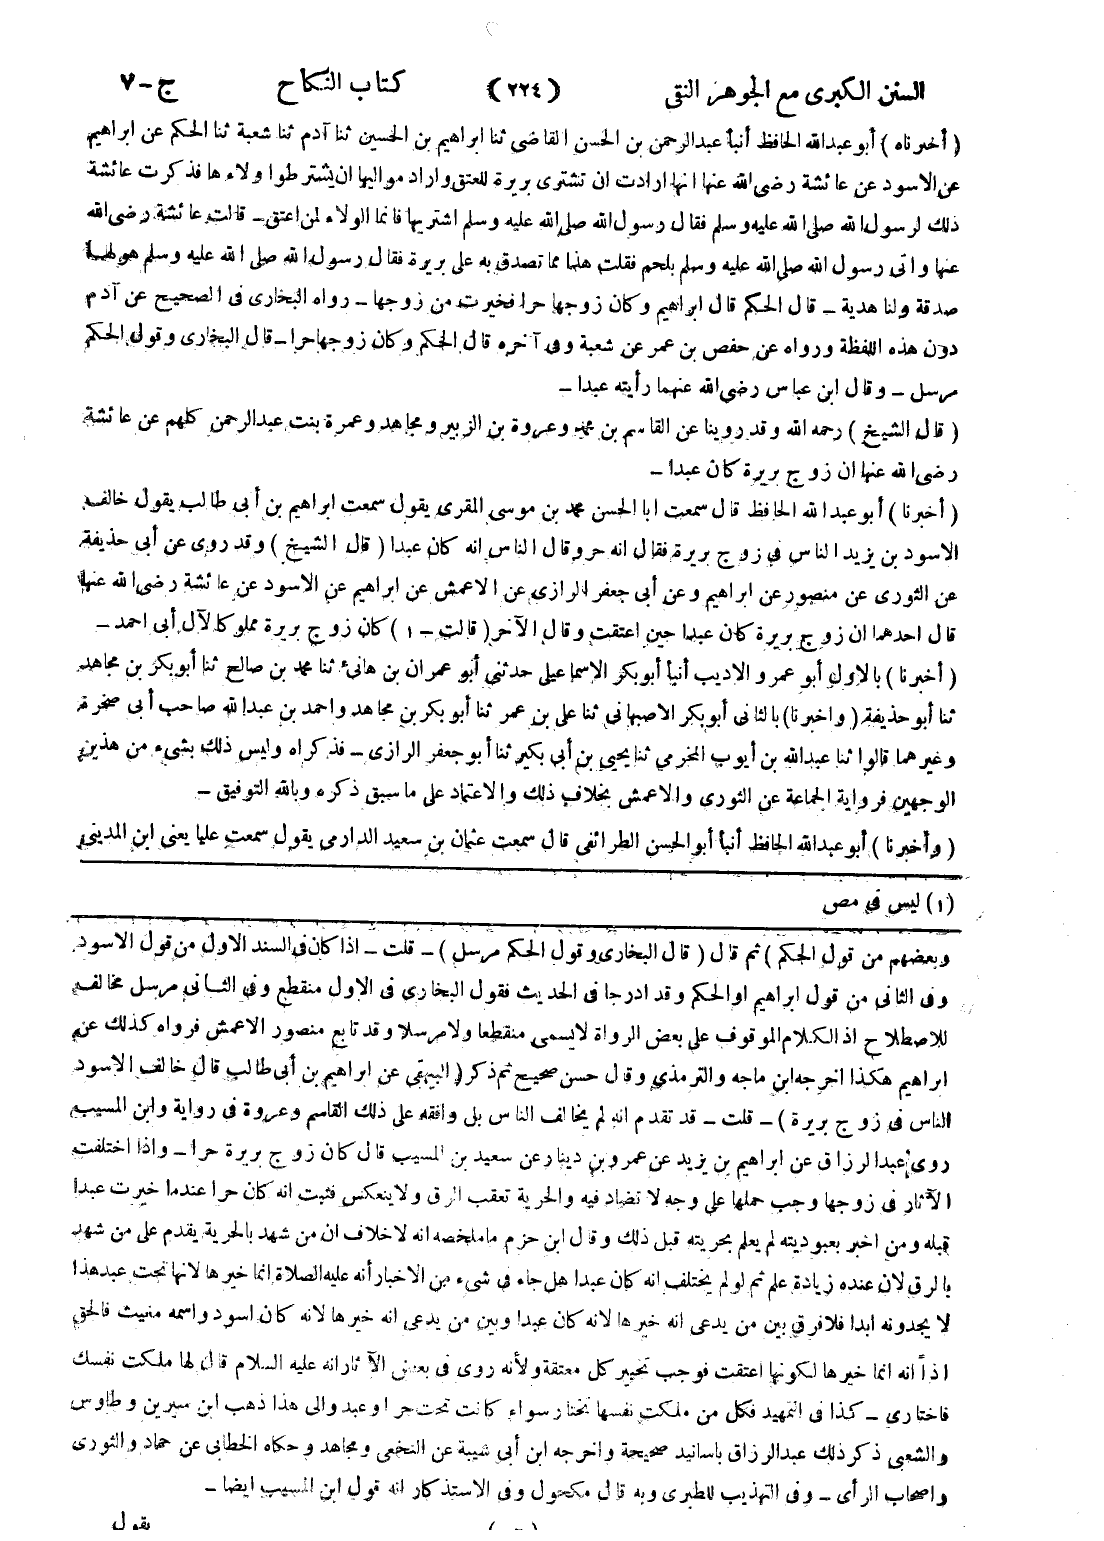 السنن الكبرى مع الجوهر النقى (٢٢٤) كتاب النكاح ج-٧
(أخبرناه) أبو عبدالله الحافظ أنبأ عبدالرحمن بن الحسن القاضى ثنا ابراهيم بن الحسين ثنا آدم ثنا شعبة ثنا الحكم عن ابراهيم
عن الاسود عن عائشة رضى الله عنها انها ارادت ان تشترى بريرة للعتق واراد مواليها ان يشترطوا ولاءها فذكرت عائشة
ذلك لرسول الله صلى الله عليه وسلم فقال رسول الله صلى الله عليه وسلم اشتريها فانما الولاء لمن اعتق ــ قالت عائشة رضى الله
عنها واتى رسول الله صلى الله عليه وسلم بلحم فقلت هذا مما تصدق به على بريرة فقال رسول الله صلى الله عليه وسلم هو لها
صدقة ولنا هدية ــ قال الحكم قال ابراهيم وكان زوجها حرا فخيرت من زوجها ــ رواه البخارى فى الصحيح عن آدم
دون هذه اللفظة ورواه عن حفص بن عمر عن شعبة وفى آخره قال الحكم وكان زوجها حرا ــ قال البخارى وقول الحكم
مرسل ــ وقال ابن عباس رضى الله عنهما رأيته عبدا ــ
(قال الشيخ) رحمه الله وقد روينا عن القاسم بن محمد وعروة بن الزبير ومجاهد وعمرة بنت عبدالرحمن كلهم عن عائشة
رضى الله عنها ان زوج بريرة كان عبدا ــ
(أخبرنا) أبو عبدالله الحافظ قال سمعت ابا الحسن محمد بن موسى المقرى يقول سمعت ابراهيم بن أبى طالب يقول خالف
الاسود بن يزيد الناس فى زوج بريرة فقال انه حر وقال الناس انه كان عبدا (قال الشيخ) وقد روى عن أبى حذيفة
عن الثورى عن منصور عن ابراهيم وعن أبى جعفر الرازى عن الاعمش عن ابراهيم عن الاسود عن عائشة رضى الله عنها
قال احدهما ان زوج بريرة كان عبدا حين اعتقت وقال الآخر (قالت ــ ١) كان زوج بريرة مملوكا لآل أبى احمد ــ
(أخبرنا) بالاول أبو عمرو الاديب أنبأ أبو بكر الاسماعيلى حدثنى أبو عمران بن هانئ ثنا محمد بن صالح ثنا أبو بكر بن مجاهد
ثنا أبو حذيفة (واخبرنا) بالثانى أبو بكر الاصبهانى ثنا على بن عمر ثنا أبو بكر بن مجاهد واحمد بن عبدالله صاحب أبى صخرة
وغيرهما قالوا ثنا عبدالله بن أيوب المخرمى ثنا يحيى بن أبى بكير ثنا أبو جعفر الرازى ــ فذكراه وليس ذلك بشىء من هذين
الوجهين فرواية الجماعة عن الثورى والاعمش بخلاف ذلك والاعتماد على ما سبق ذكره وبالله التوفيق ــ
(وأخبرنا) أبو عبدالله الحافظ أنبأ أبو الحسن الطرائفى قال سمعت عثمان بن سعيد الدارمى يقول سمعت عليا يعنى ابن المدينى
(١) ليس فى مص
وبعضهم من قول الحكم) ثم قال (قال البخارى وقول الحكم مرسل) ــ قلت ــ اذا كان فى السند الاول من قول الاسود
وفى الثانى من قول ابراهيم او الحكم وقد ادرجا فى الحديث فقول البخارى فى الاول منقطع وفى الثانى مرسل مخالف
للاصطلاح اذ الكلام الموقوف على بعض الرواة لا يسمى منقطعا ولا مرسلا وقد تابع منصور الاعمش فرواه كذلك عن
ابراهيم هكذا اخرجه ابن ماجه والترمذى وقال حسن صحيح ثم ذكر (البيهقى عن ابراهيم بن أبى طالب قال خالف الاسود
الناس فى زوج بريرة) ــ قلت ــ قد تقدم انه لم يخالف الناس بل وافقه على ذلك القاسم وعروة فى رواية وابن المسيب
روى عبدالرزاق عن ابراهيم بن يزيد عن عمرو بن دينار عن سعيد بن المسيب قال كان زوج بريرة حرا ــ واذا اختلفت
الآثار فى زوجها وجب حملها على وجه لا تضاد فيه والحرية تعقب الرق ولا ينعكس فثبت انه كان حرا عندما خيرت عبدا
قبله ومن اخبر بعبوديته لم يعلم بحريته قبل ذلك وقال ابن حزم ما ملخصه انه لا خلاف ان من شهد بالحرية يقدم على من شهد
بالرق لان عنده زيادة علم ثم لو لم يختلف انه كان عبدا هل جاء فى شىء من الاخبار أنه عليه الصلاة انما خيرها لانها تحت عبد هذا
لا يجدونه ابدا فلا فرق بين من يدعى انه خيرها لانه كان عبدا وبين من يدعى انه خيرها لانه كان اسود واسمه مغيث فالحق
اذاً انه انما خيرها لكونها اعتقت فوجب تخيير كل معتقة ولأنه روى فى بعض الآثار انه عليه السلام قال لها ملكت نفسك
فاختارى ــ كذا فى التمهيد فكل من ملكت نفسها تختار سواء كانت تحت حر او عبد والى هذا ذهب ابن سيرين وطاوس
والشعبى ذكر ذلك عبدالرزاق باسانيد صحيحة واخرجه ابن أبى شيبة عن النخعى ومجاهد وحكاه الخطابى عن حماد والثورى
واصحاب الرأى ــ وفى التهذيب للطبرى وبه قال مكحول وفى الاستذكار انه قول ابن المسيب ايضا ــ
يقول